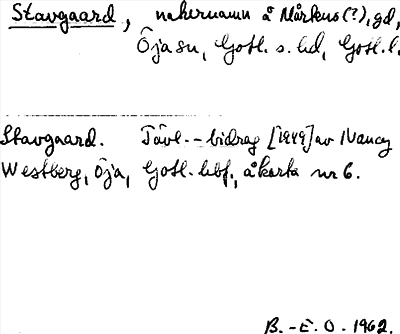 Stavgaard, åkernamn å Mårkus(?), gd,
Öja sn, Gotl. s. hd, Gotl. l.
Stavgaard. Tävl.-bidrag [1949] av Nancy
Westberg, Öja, Gotl. hbf., åkarta nr 6.
B.-E. O. 1962.